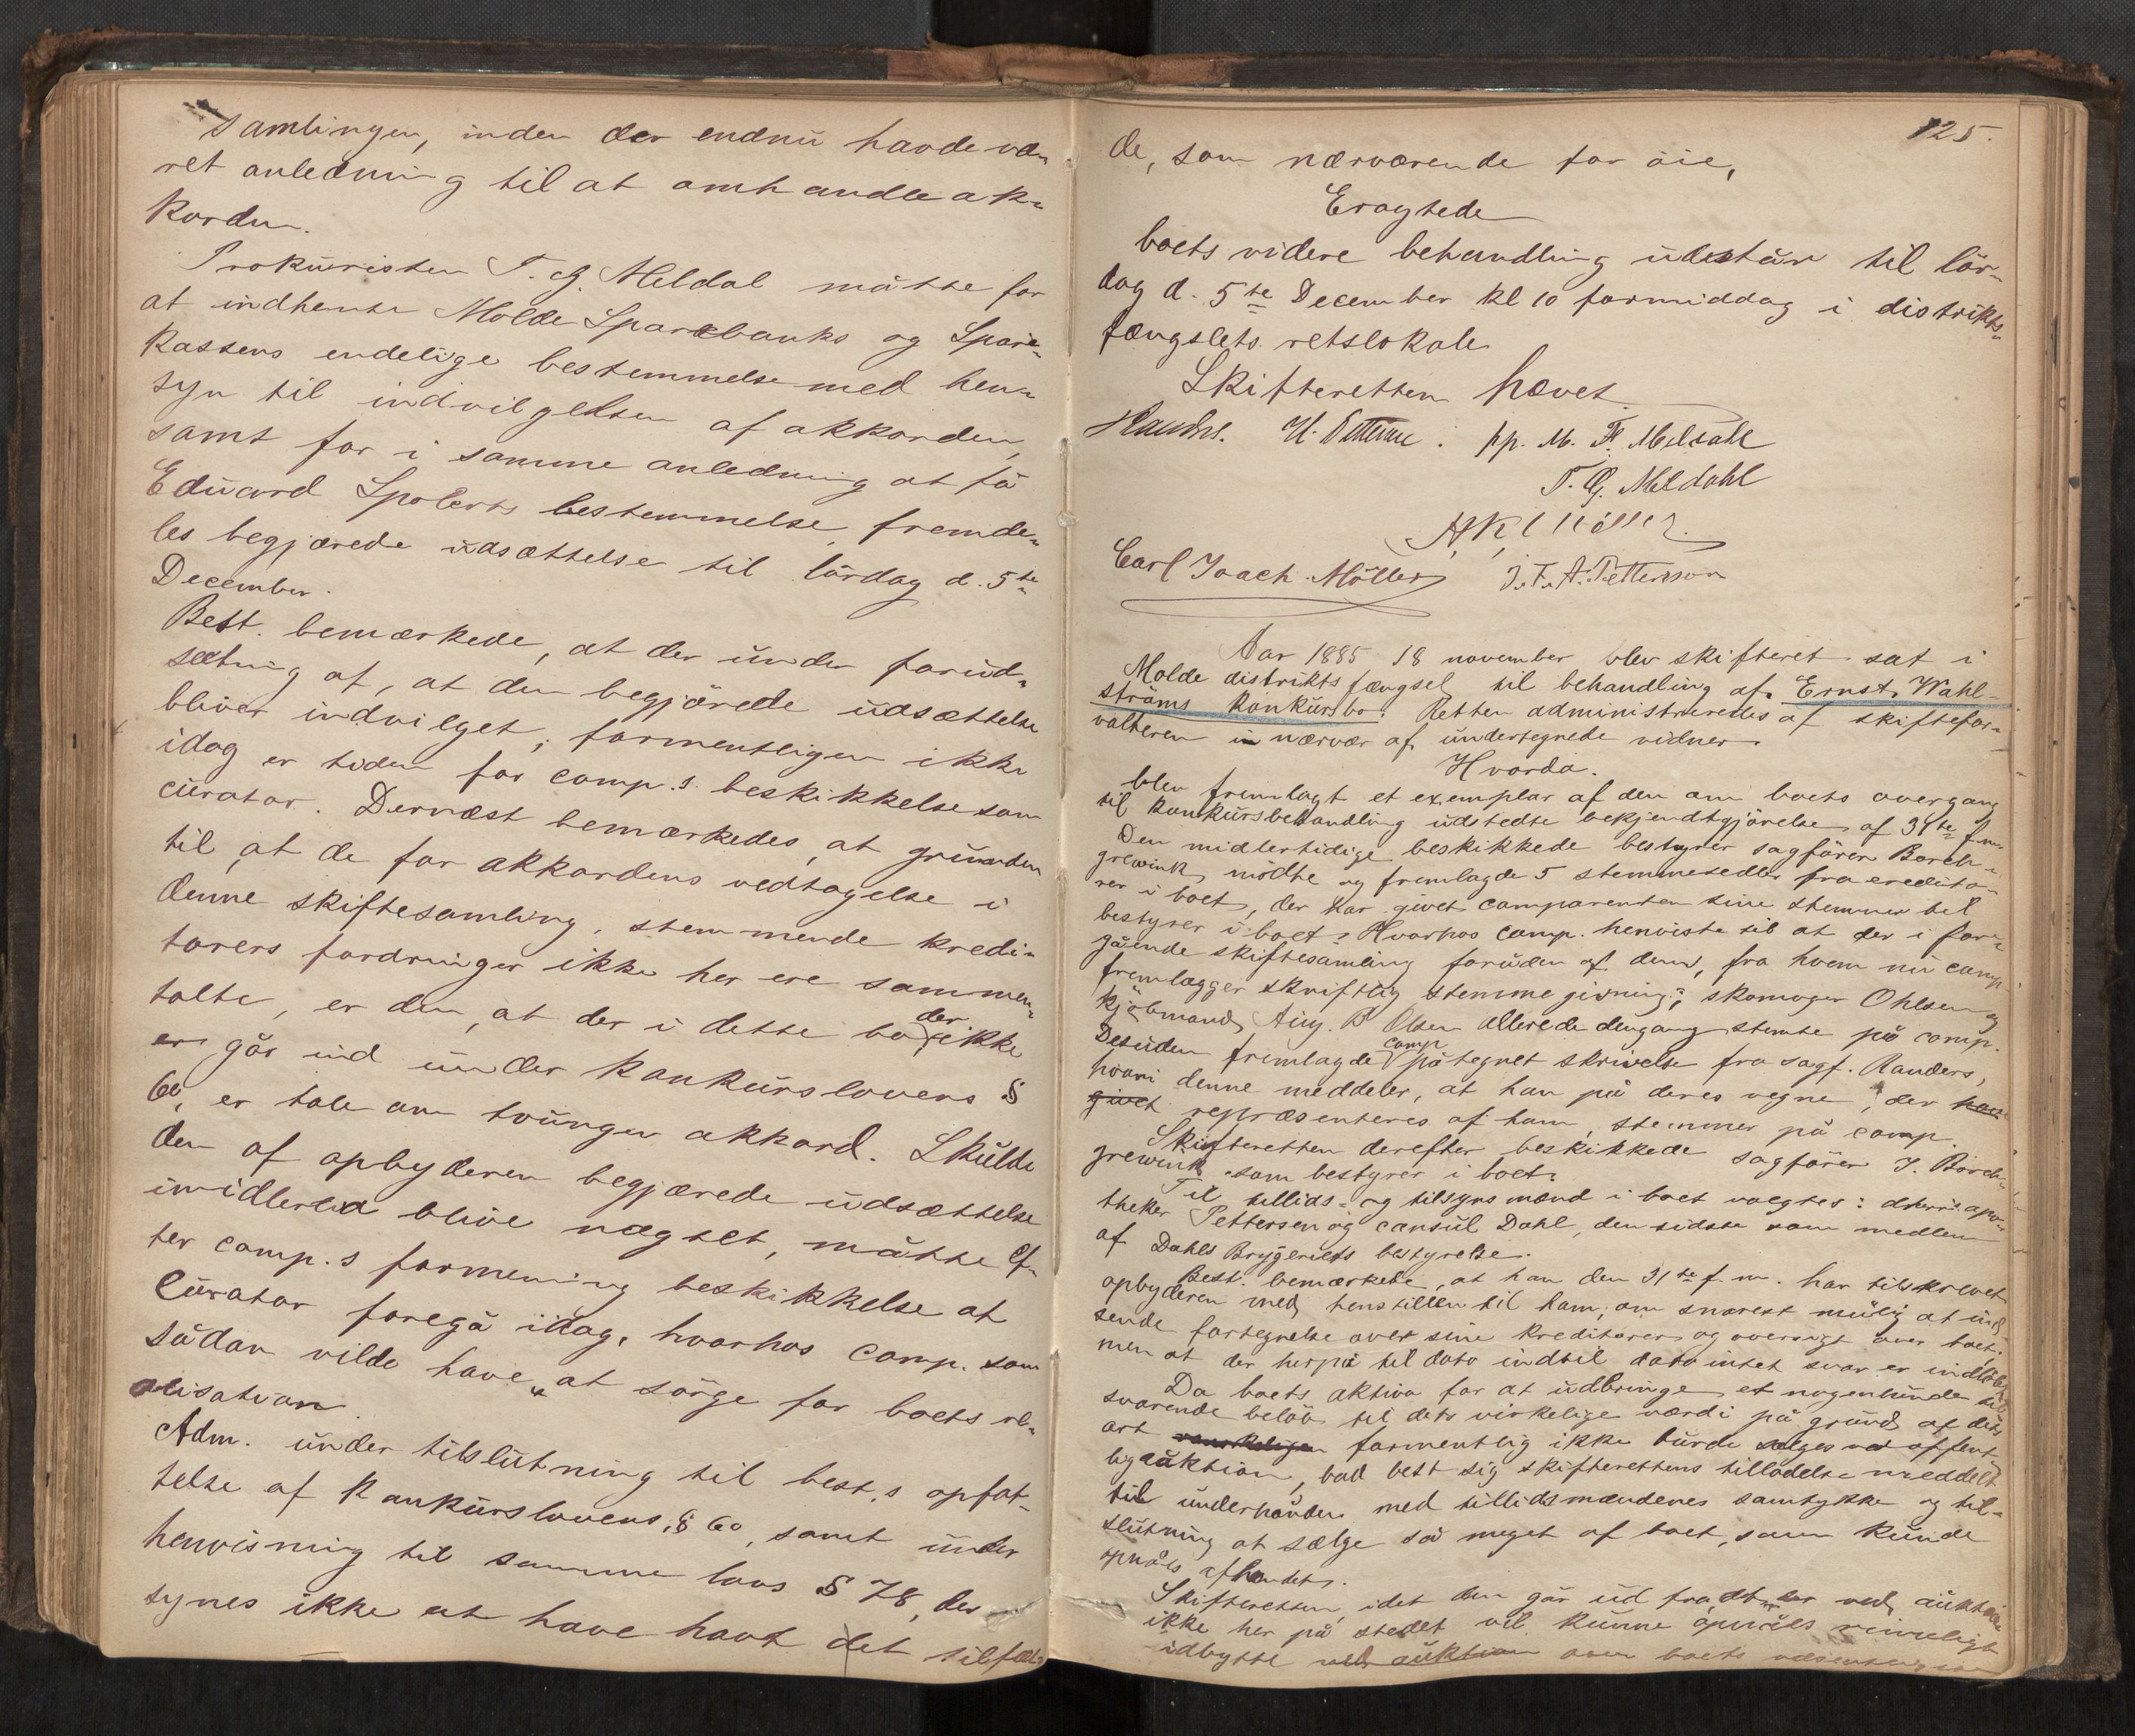 samlingen, inden der endnu havde væ„
ret anledning til at omhandle ak„
korden.
Prokuristen T. G. Meldal måtte for
at indhente Molde Sparebanks og Spare„
kassens endelige bestemmelse med hen„
syn til indvilgelsen af akkorden,
samt for i samme anledning at få
Eduard Spolerts bestemmelse, fremde„
les begjærede udsættelse til lördag d. 5te
December.
Best. bemærkede, at der under forud„
sætning af, at den begjærede udsættelse
bliver indvilget, formentligen ikke
idag er tiden for comp.s beskikkelse som
curator. Dernæst bemærkedes, at grunden
til at de for akkordens vedtagelse i
denne skiftesamling, stemmende kredi„
torers fordringer ikke her ere sammen„
talte, er den, at der i dette bo der ikke
er går ind under konkurslovens §
60, er tale om tvungen akkord. Skulde
den af opbyderen begjærede udsættelse
imidlertid blive nægtet, måtte ef„
ter comp.s formening beskikkelse af
Curator foregå idag, hvorhos comp. som
sådan vilde have at sörge for boets re„
alisation.
Adm. under tilslutning til best.s opfat„
telse af Konkurslovens § 60, samt under
henvisning til samme lovs § 78, der
synes ikke at have havt det tilfæl„
125.
de, som nærværende for öie,
Eragtede
boets videre behandling udestår til lör„
dag d. 5te December kl 10 formiddag i distrikts„
fængslets retslokale
Skifteretten hævet
pp. M. F. Meldahl
T. G. Meldahl
A K Möller.
Carl Joach. Möller J. F. A. Pettersson
Aar 1885 18 november blev skifteret sat i
Molde distriktsfængsel til behandling af Ernst Wahl-
ströms konkursbo. Retten administreredes af skiftefor„
valteren i nærvær af undertegnede vidner.
Hvorda.
blev fremlagt et exemplar af den om boets overgang
til konkursbehandling udstedte bekjendtgjörelse af 31te f.m.
Den midlertidige beskikkede bestyrer sagförer Borch„
grewink mödte og fremlagde 5 stemmesedler fra credito„
rer i boet, der har givet comparenten sine stemmer til
bestyrer i boet. Hvorhos comp. henviste til at der i for„
gående skiftesamling foruden af dem, fra hvem nu comp
fremlægger skriftlig stemmegivning, skomager Ohlsen og
kjöbmand Aug. B Olsen allerede dengang stemte på comp.
Desuden fremlagde comp påtegnet skrivelse fra sagf. Randers,
hvori denne meddeler, at han på deres vegne, der har
givet repræsenteres af ham, stemmer på comp.
Skifteretten derefter beskikkede sagförer J. Borch„
grewink som bestyrer i boet.
Til tillids- og tilsynsmænd i boet valgtes: apo„
theker Pettersen og consul Dahl, den sidste som medlem
af Dahls Bryggeriets bestyrelse.
Best. bemærkede, at han den 31te f.m. har tilskrevet
opbyderen med henstillen til ham, om snarest mulig at ind„
sende fortegnelse over sine kreditorer og oversigt over boet,
men at der herpå til dato indtil dato intet svar er indlöbet.
Da boets aktiva for at udbringe et nogenlunde til
svarende belöb til dets virkelige værdi på grund af dets
art formentlig ikke burde sælges ved offent
lig auktion, bad best sig skifterettens tilladelse meddelt
til underhånden med tillidsmændenes samtykke og til„
slutning at sælge så meget af boet, som kunde
opnåes afhændet.
Skifteretten, idet den går ud fra at der ved auktion
ikke her på stedet vil kunne opnåes rimeligt
udbytte ved auktion over boets